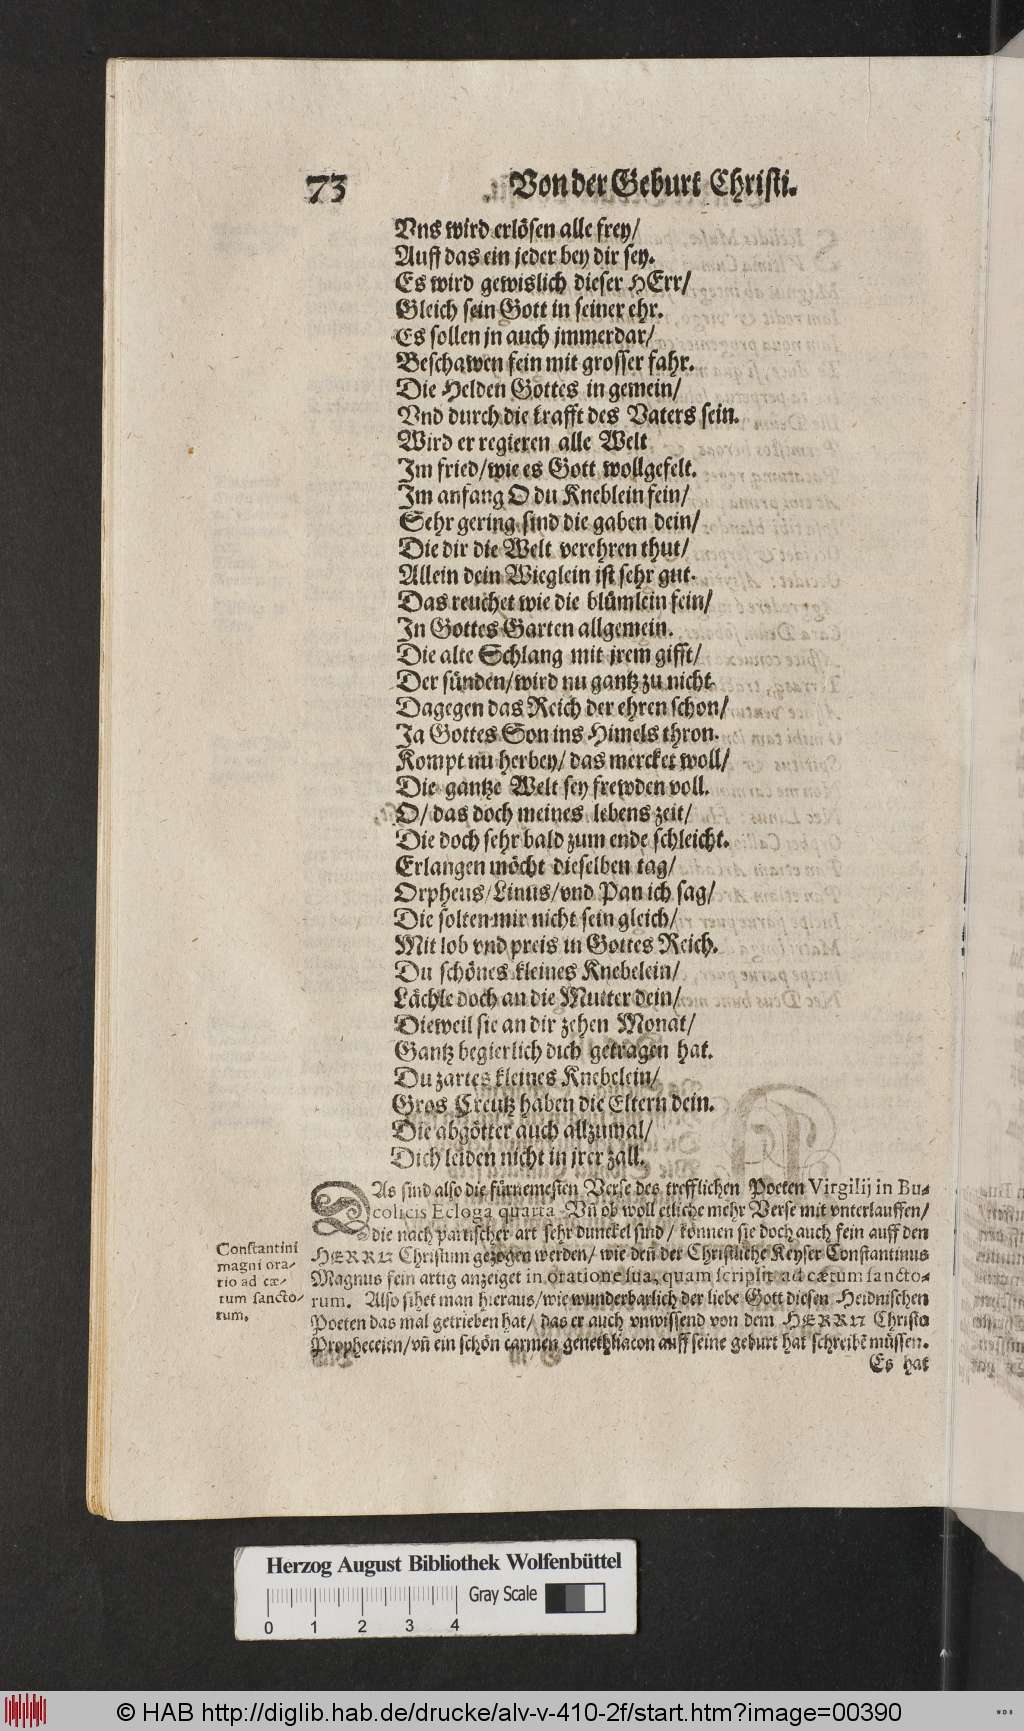 73 Von der Geburt Christi.
Vns wird erlösen alle frey/
Auff das ein jeder bey dir sey.
Es wird gewislich dieser HErr/
Gleich sein Gott in seiner ehr.
Es sollen jn auch jmmerdar/
Beschawen fein mit grosser fahr.
Die Helden Gottes in gemein/
Vnd durch die krafft des Vaters sein.
Wird er regieren alle Welt
Im fried/wie es Gott wollgefelt.
Im anfang O du Kneblein fein/
Sehr gering sind die gaben dein/
Die dir die Welt verehren thut/
Allein dein Wieglein ist sehr gut.
Das reuchet wie die blümlein fein/
In Gottes Garten allgemein.
Die alte Schlang mit jrem gifft/
Der sünden/wird nu gantz zu nicht.
Dagegen das Reich der ehren schon/
Ja Gottes Son ins Himels thron.
Kompt nu herbey/ das mercket woll/
Die gantze Welt sey frewden voll.
O/ das doch meines lebens zeit/
Die doch sehr bald zum ende schleicht.
Erlangen möcht dieselben tag/
Orpheus/Linus/vnd Pan ich sag/
Die solten mir nicht sein gleich/
Mit lob vnd preis in Gottes Reich.
Du schönes kleines Knebelein/
Lächle doch an die Mutter dein/
Dieweil sie an dir zehen Monat/
Gantz begierlich dich getragen hat.
Du zartes kleines Knebelein/
Gros Creutz haben die Eltern dein.
Die abgötter auch allzumal/
Dich leiden nicht in jrer zall.
DAs sind also die fürnemesten Verse des trefflichen Poeten Virgilij in Bu-
colicis Ecloga quarta. Vn̄ ob woll etliche mehr Verse mit vnterlauffen/
die nach partischer art sehr dunckel sind/ können sie doch auch fein auff den
HERRN Christum gezogen werden/ wie den̄ der Christliche Keyser Constantinus
Magnus fein artig anzeiget in oratione sua, quam scripsit ad cætum sancto-
rum. Also sihet man hieraus/wie wunderbarlich der liebe Gott diesen Heidnischen
Poeten das mal getrieben hat/ das er auch vnwissend von dem HERRN Christo
Propheceien/vn̄ ein schön carmen genethliacon auff seine geburt hat schreibē müssen.
Es hat
Constantini
magni ora-
tio ad cæ-
tum sancto-
rum.
Herzog August Bibliothek Wolfenbüttel
Gray Scale
0 1 2 3 4
© HAB http://diglib.hab.de/drucke/alv-v-410-2f/start.htm?image=00390